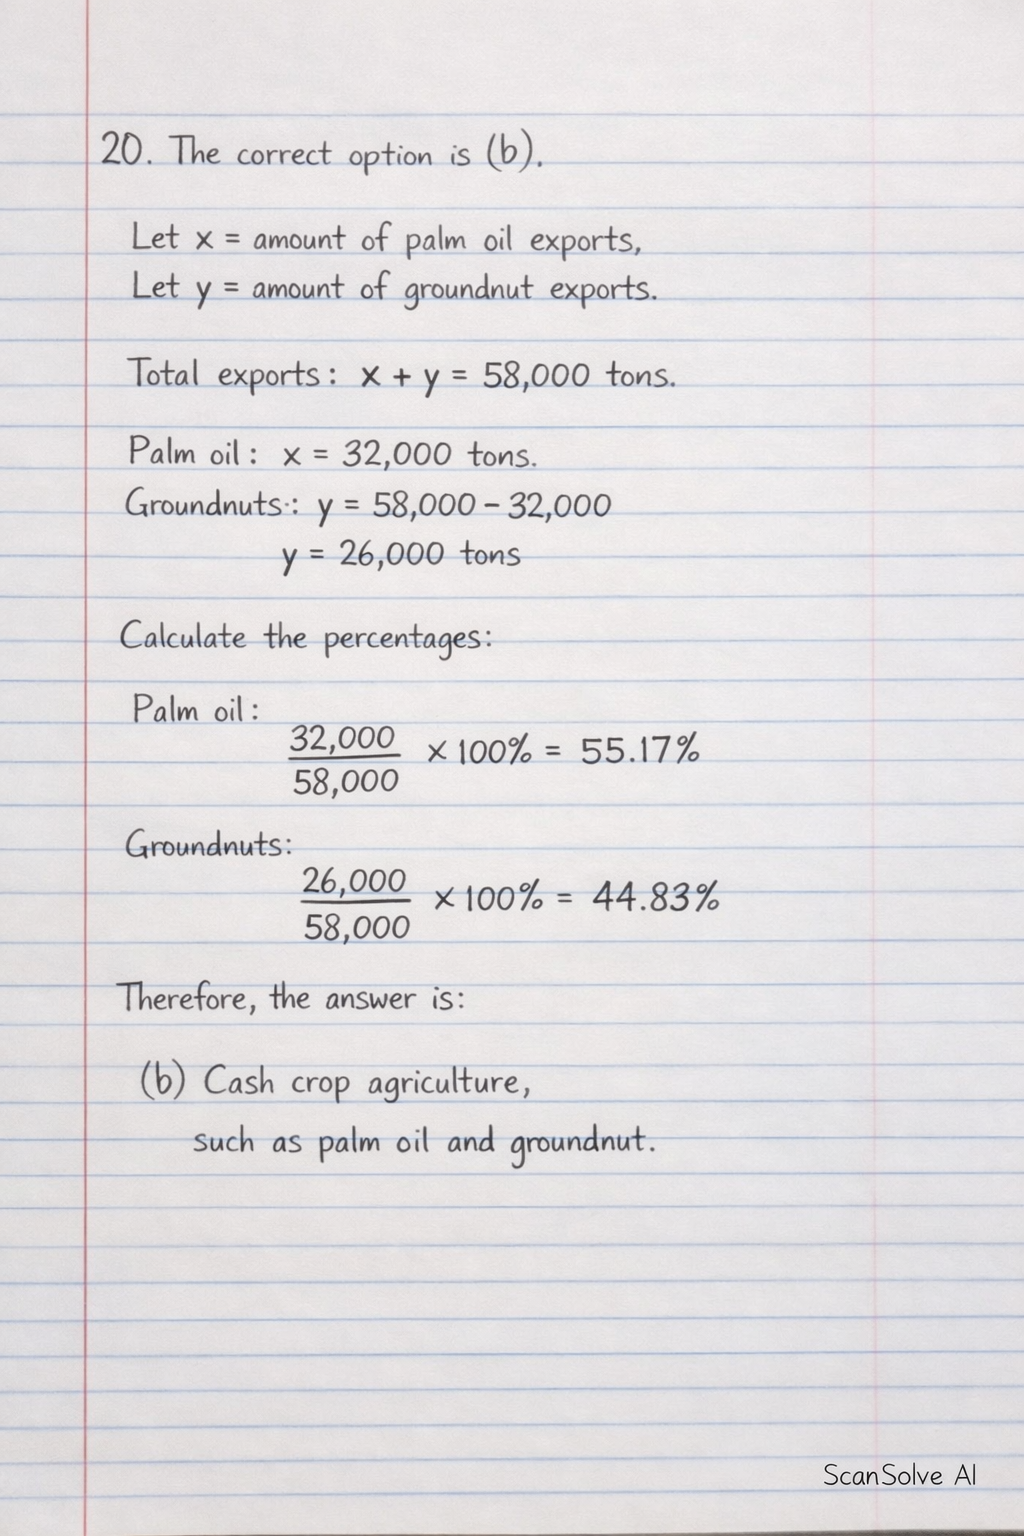 20. The correct option is (b).
Let x = amount of palm oil exports,
Let y = amount of groundnut exports.
Total exports: x + y = 58,000 tons.
Palm oil: x = 32,000 tons.
Groundnuts: y = 58,000 - 32,000
y = 26,000 tons
Calculate the percentages:
Palm oil:
32,000
× 100% = 55.17%
58,000
Groundnuts:
26,000
× 100% = 44.83%
58,000
Therefore, the answer is:
(b) Cash crop agriculture,
such as palm oil and groundnut.
ScanSolve AI